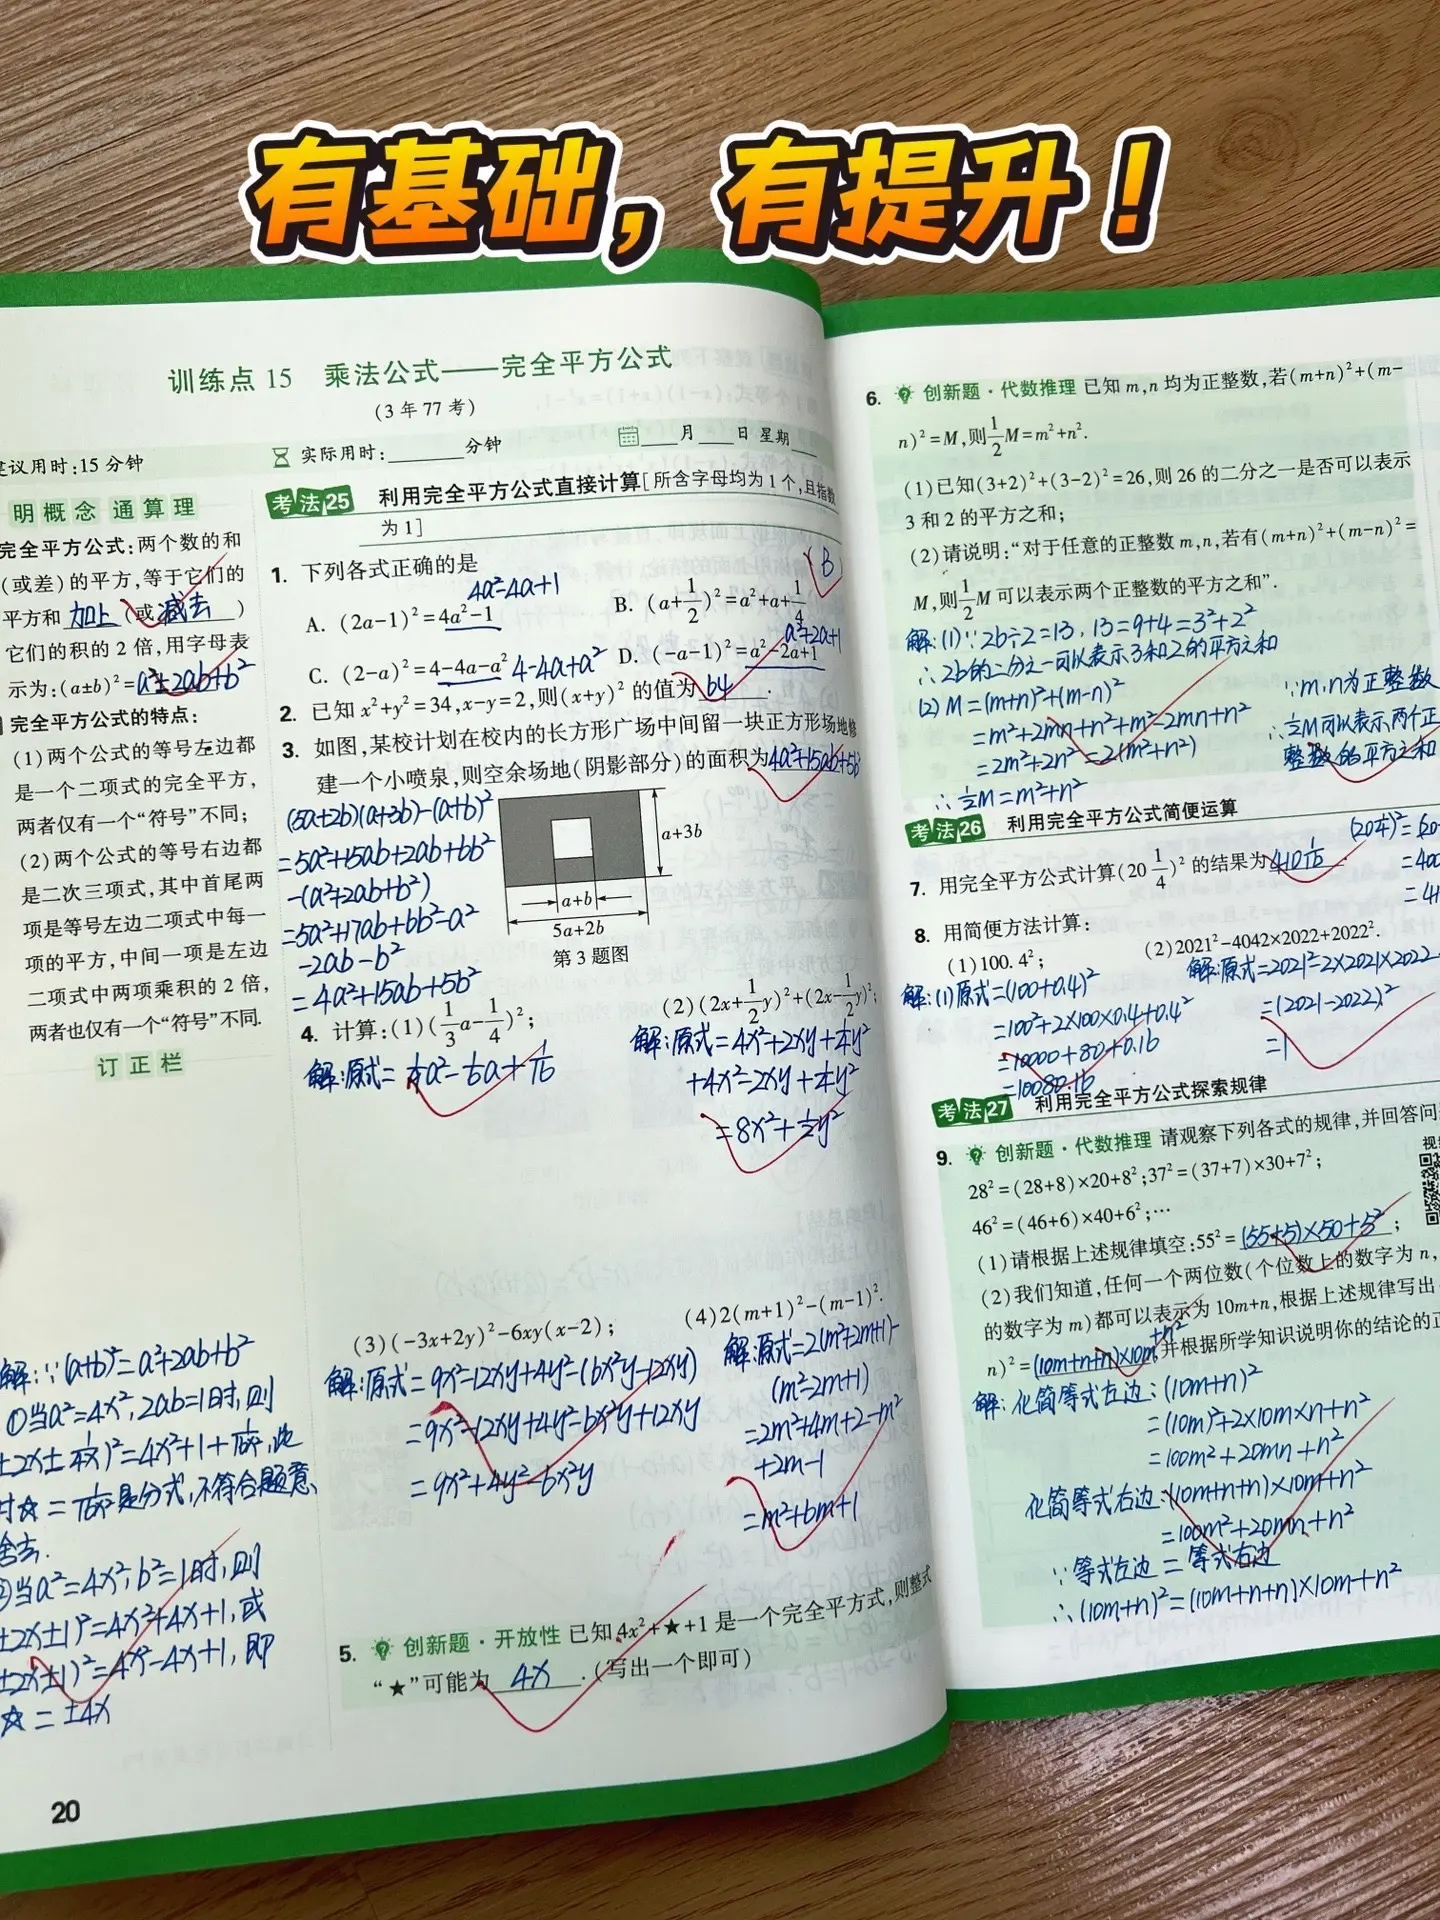 有基础，有提升！
训练点 15 乘法公式——完全平方公式
(3 年 77 考)
建议用时:15 分钟
实际用时:______分钟
___月___日 星期___
明概念 通算理
完全平方公式:两个数的和
(或差)的平方,等于它们的
平方和 加上 (或 减去 )
它们的积的 2 倍,用字母表
示为:(a±b)²=a²±2ab+b²
完全平方公式的特点:
(1)两个公式的等号左边都
是一个二项式的完全平方,
两者仅有一个“符号”不同;
(2)两个公式的等号右边都
是二次三项式,其中首尾两
项是等号左边二项式中每一
项的平方,中间一项是左边
二项式中两项乘积的 2 倍,
两者也仅有一个“符号”不同.
订正栏
解:∵(a+b)²=a²+2ab+b²
①当a²=4x²,2ab=1时,则
是分式,不符合题意,
舍去.
②当a²=4x²,b²=1时,则
±2x±1)²=4x²+4x+1,或
±2x±1)²=4x²-4x+1,即
☆=±4x
20
考法25 利用完全平方公式直接计算[所含字母均为 1 个,且指数
为 1]
1. 下列各式正确的是 ( B )
4a²-4a+1
A. (2a-1)²=4a²-1 B. (a+1/2)²=a²+a+1/4
a²+2a+1
C. (2-a)²=4-4a-a² 4-4a+a² D. (-a-1)²=a²-2a+1
2. 已知 x²+y²=34,x-y=2,则(x+y)² 的值为 64 .
3. 如图,某校计划在校内的长方形广场中间留一块正方形场地修
建一个小喷泉,则空余场地(阴影部分)的面积为4a²+15ab+5b²
(5a+2b)(a+3b)-(a+b)²
=5a²+15ab+2ab+6b²
-(a²+2ab+b²)
=5a²+17ab+6b²-a²
-2ab-b²
=4a²+15ab+5b²
a+3b
a+b
5a+2b
第 3 题图
4. 计算:(1)(1/3a-1/4)²; (2)(2x+1/2y)²+(2x-1/2y)²;
解:原式=1/9a²-1/6a+1/16
解:原式=4x²+2xy+1/4y²
+4x²-2xy+1/4y²
=8x²+1/2y²
(3)(-3x+2y)²-6xy(x-2); (4)2(m+1)²-(m-1)².
解:原式=9x²-12xy+4y²-(6x²y-12xy)
=9x²-12xy+4y²-6x²y+12xy
=9x²+4y²-6x²y
解:原式=2(m²+2m+1)-
(m²-2m+1)
=2m²+4m+2-m²
+2m-1
=m²+6m+1
5. 创新题·开放性 已知 4x²+★+1 是一个完全平方式,则整式
“★”可能为 4x .(写出一个即可)
6. 创新题·代数推理 已知 m,n 均为正整数,若(m+n)²+(m-
n)²=M,则1/2M=m²+n².
(1)已知(3+2)²+(3-2)²=26,则 26 的二分之一是否可以表示
3 和 2 的平方之和;
(2)请说明:“对于任意的正整数 m,n,若有(m+n)²+(m-n)²=
M,则1/2M 可以表示两个正整数的平方之和”.
解:(1)∵26÷2=13,13=9+4=3²+2²
∴26的二分之一可以表示3和2的平方之和
(2)M=(m+n)²+(m-n)²
=m²+2mn+n²+m²-2mn+n²
=2m²+2n²=2(m²+n²)
∴1/2M=m²+n²
∵m,n为正整数
∴1/2M可以表示两个正
整数的平方之和
考法26 利用完全平方公式简便运算
7. 用完全平方公式计算(20 1/4)² 的结果为410 1/16
8. 用简便方法计算:
(1)100.4²; (2)2021²-4042×2022+2022².
解:(1)原式=(100+0.4)²
=100²+2×100×0.4+0.4²
=10000+80+0.16
=10080.16
解:原式=2021²-2×2021×2022
=(2021-2022)²
=1
考法27 利用完全平方公式探索规律
9. 创新题·代数推理 请观察下列各式的规律,并回答问
28²=(28+8)×20+8²;37²=(37+7)×30+7²;
46²=(46+6)×40+6²;…
(1)请根据上述规律填空:55²=(55+5)×50+5²;
(2)我们知道,任何一个两位数(个位数上的数字为 n,
的数字为 m)都可以表示为 10m+n,根据上述规律写出
n)²=(10m+n+n)×10m+n²,并根据所学知识说明你的结论的正
解:化简等式左边:(10m+n)²
=(10m)²+2×10m×n+n²
=100m²+20mn+n²
化简等式右边:(10m+n+n)×10m+n²
=100m²+20mn+n²
∵等式左边=等式右边
∴(10m+n)²=(10m+n+n)×10m+n²